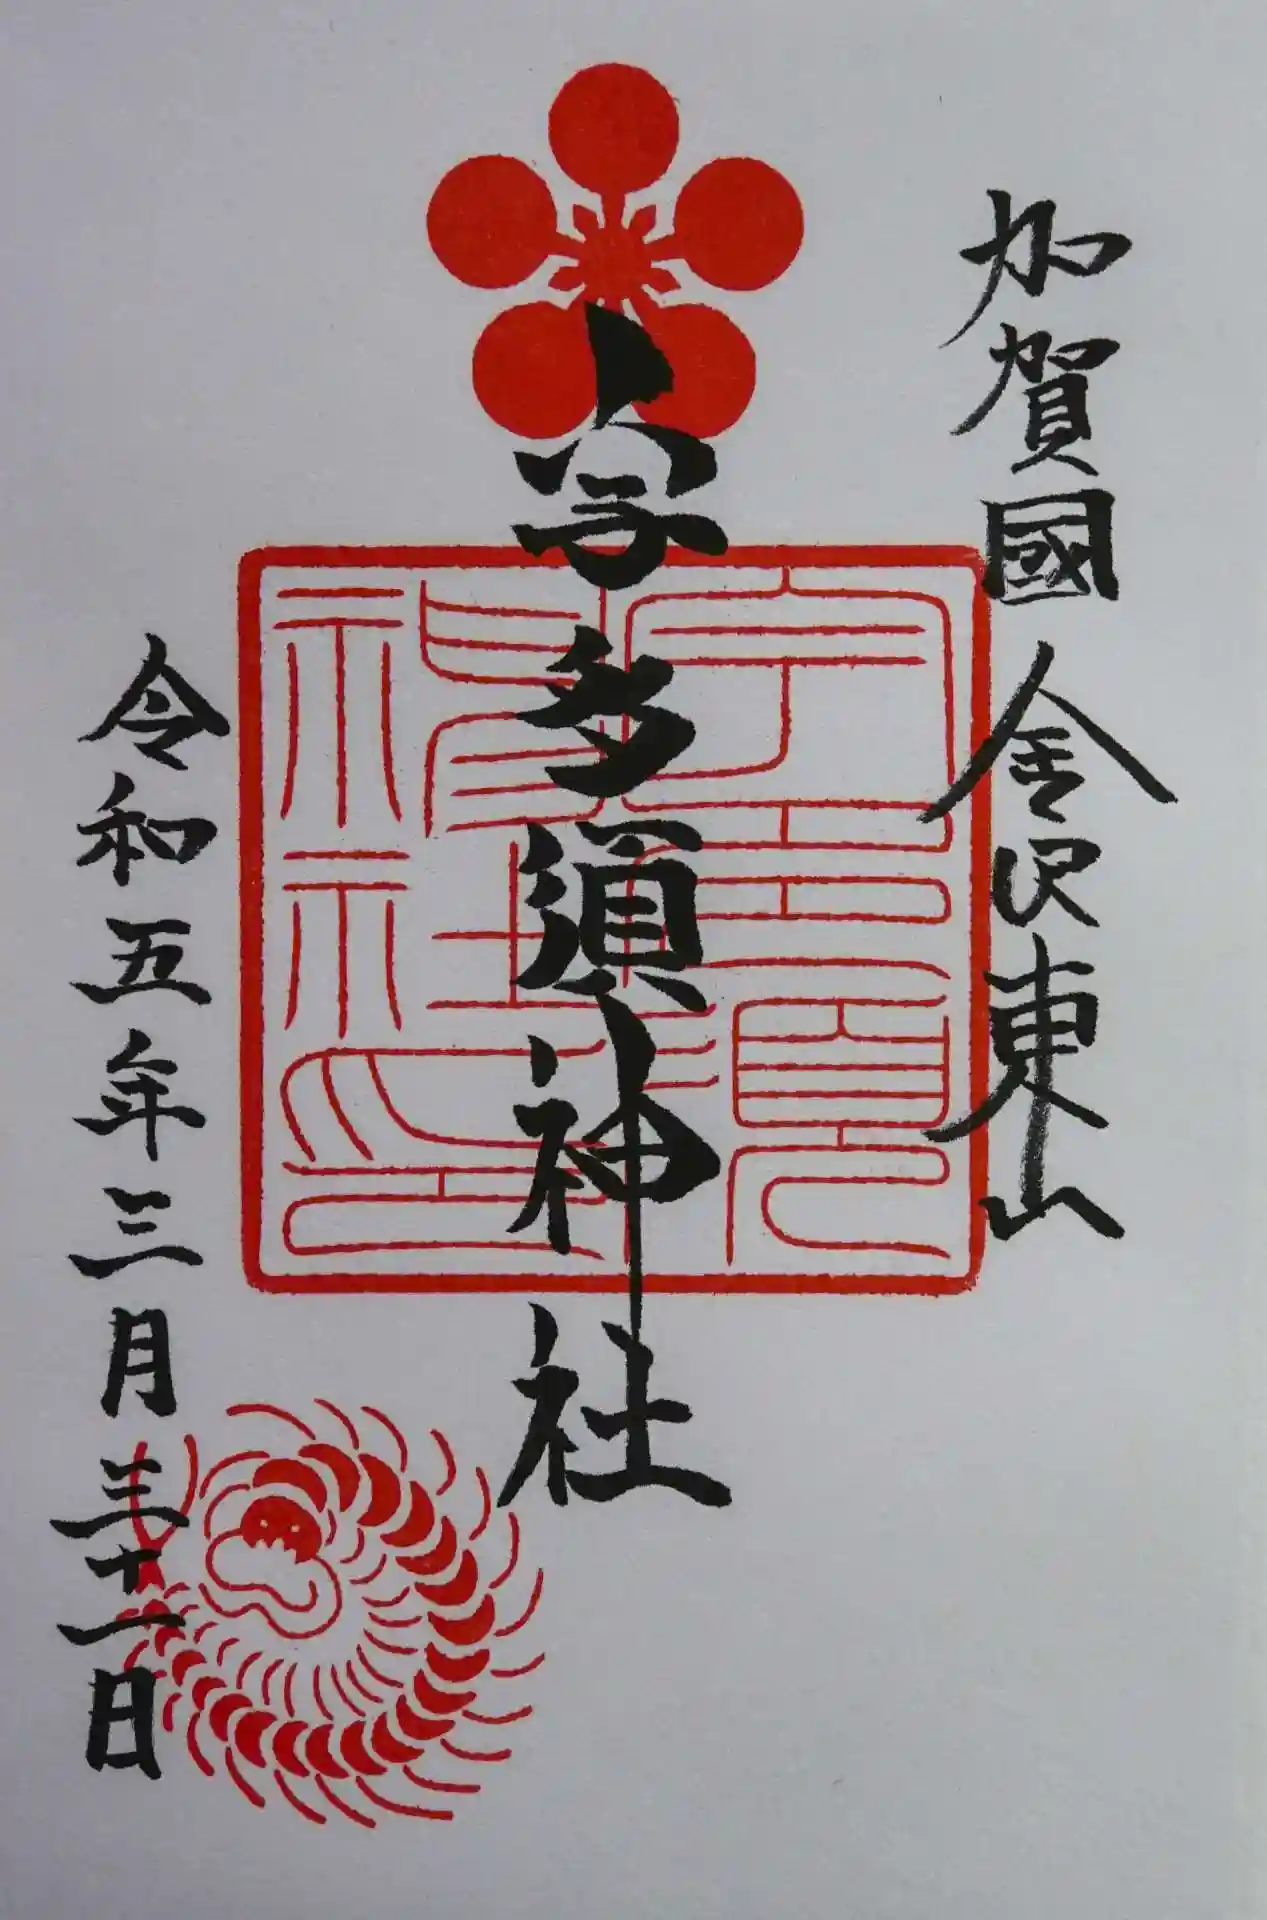 加賀國 金沢東山
宇多須神社
宇多須
神社
之印
令和五年三月三十一日